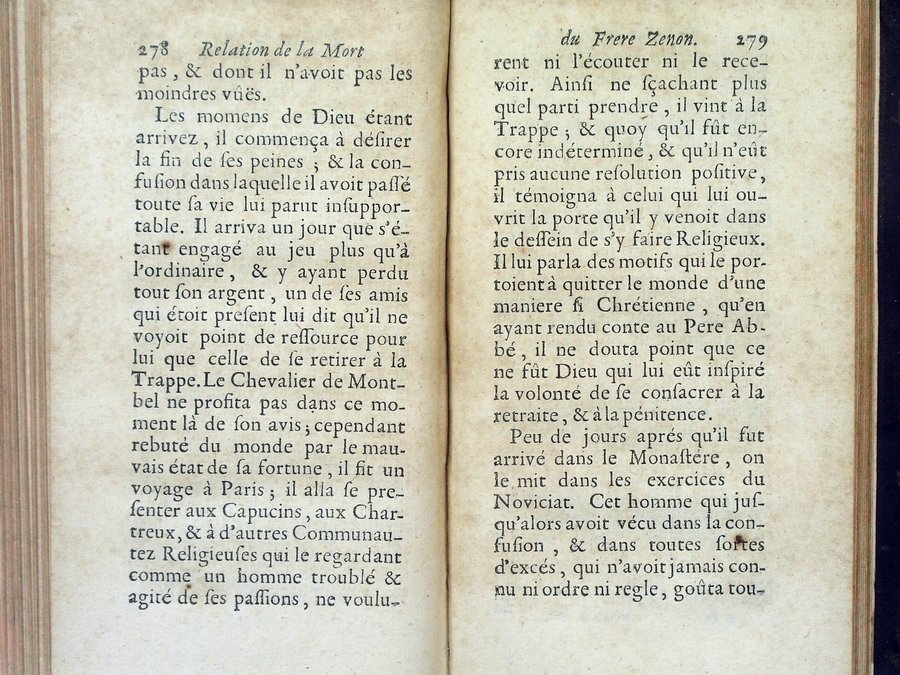 278 Relation de la Mort
pas, & dont il n'avoit pas les
moindres vûës.
Les momens de Dieu étant
arrivez, il commença à déſirer
la fin de ſes peines ; & la con-
fuſion dans laquelle il avoit paſſé
toute ſa vie lui parut inſuppor-
table. Il arriva un jour que s'é-
tant engagé au jeu plus qu'à
l'ordinaire, & y ayant perdu
tout ſon argent, un de ſes amis
qui étoit preſent lui dit qu'il ne
voyoit point de reſſource pour
lui que celle de ſe retirer à la
Trappe. Le Chevalier de Mont-
bel ne profita pas dans ce mo-
ment là de ſon avis ; cependant
rebuté du monde par le mau-
vais état de ſa fortune, il fit un
voyage à Paris ; il alla ſe pre-
ſenter aux Capucins, aux Char-
treux, & à d'autres Communau-
tez Religieuſes qui le regardant
comme un homme troublé &
agité de ſes paſſions, ne voulu-
du Frere Zenon. 279
rent ni l'écouter ni le rece-
voir. Ainſi ne ſçachant plus
quel parti prendre, il vint à la
Trappe ; & quoy qu'il fût en-
core indéterminé, & qu'il n'eût
pris aucune reſolution poſitive,
il témoigna à celui qui lui ou-
vrit la porte qu'il y venoit dans
le deſſein de s'y faire Religieux.
Il lui parla des motifs qui le por-
toient à quitter le monde d'une
maniere ſi Chrétienne, qu'en
ayant rendu conte au Pere Ab-
bé, il ne douta point que ce
ne fût Dieu qui lui eût inſpiré
la volonté de ſe conſacrer à la
retraite, & à la pénitence.
Peu de jours aprés qu'il fut
arrivé dans le Monaſtére, on
le mit dans les exercices du
Noviciat. Cet homme qui juſ-
qu'alors avoit vécu dans la con-
fuſion, & dans toutes ſortes
d'excés, qui n'avoit jamais con-
nu ni ordre ni regle, goûta tou-